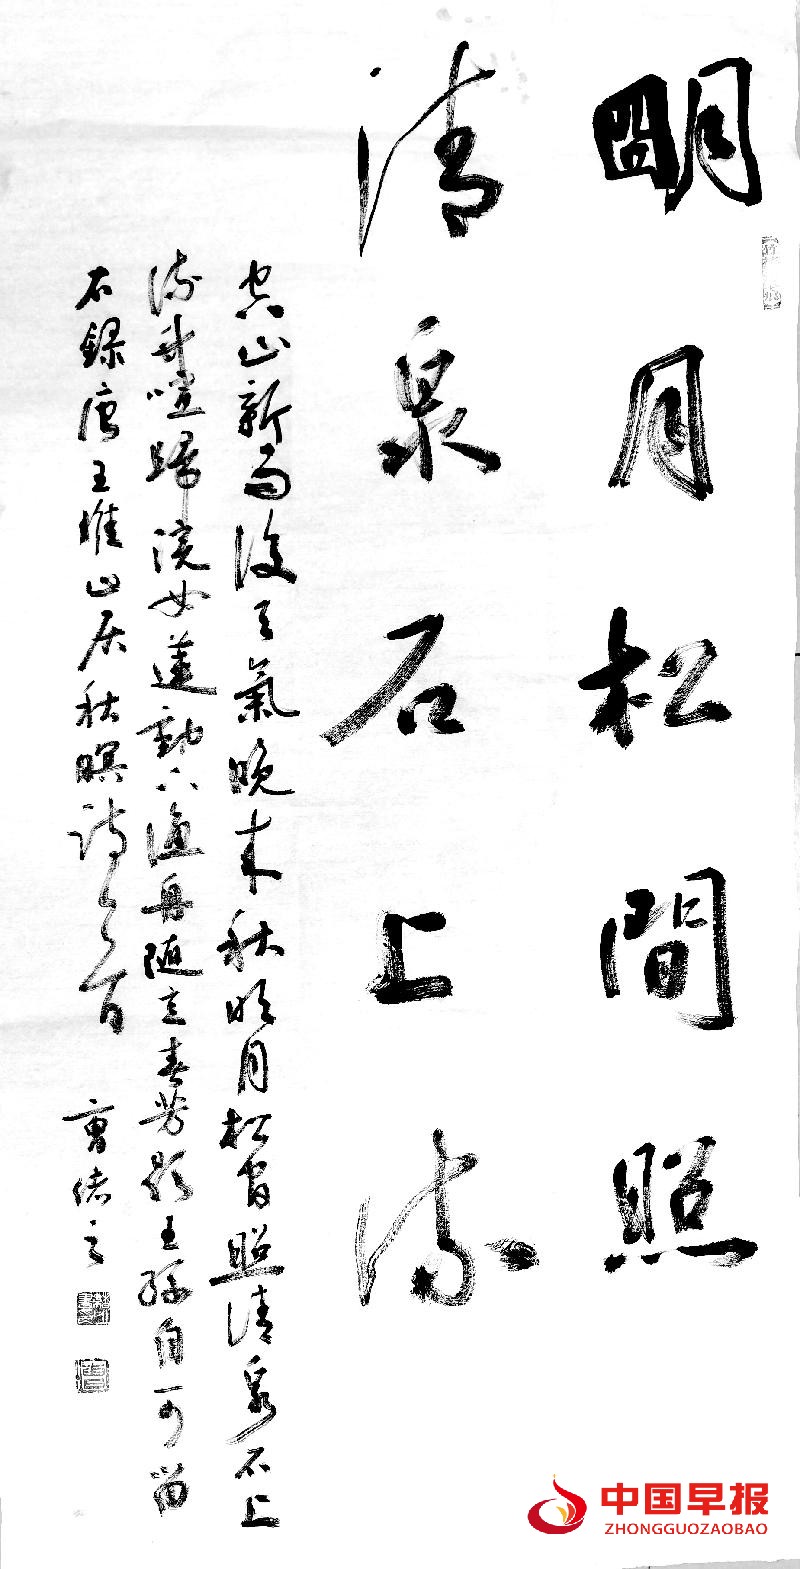 明月松間照
清泉石上流
空山新雨後天氣晚来秋明月松間照清泉石上
流竹喧歸浣女蓮動下漁舟随意春芳歇王孫自可留
右錄唐王維山居秋暝詩一首 曹之
中国早报
ZHONGGUOZAOBAO